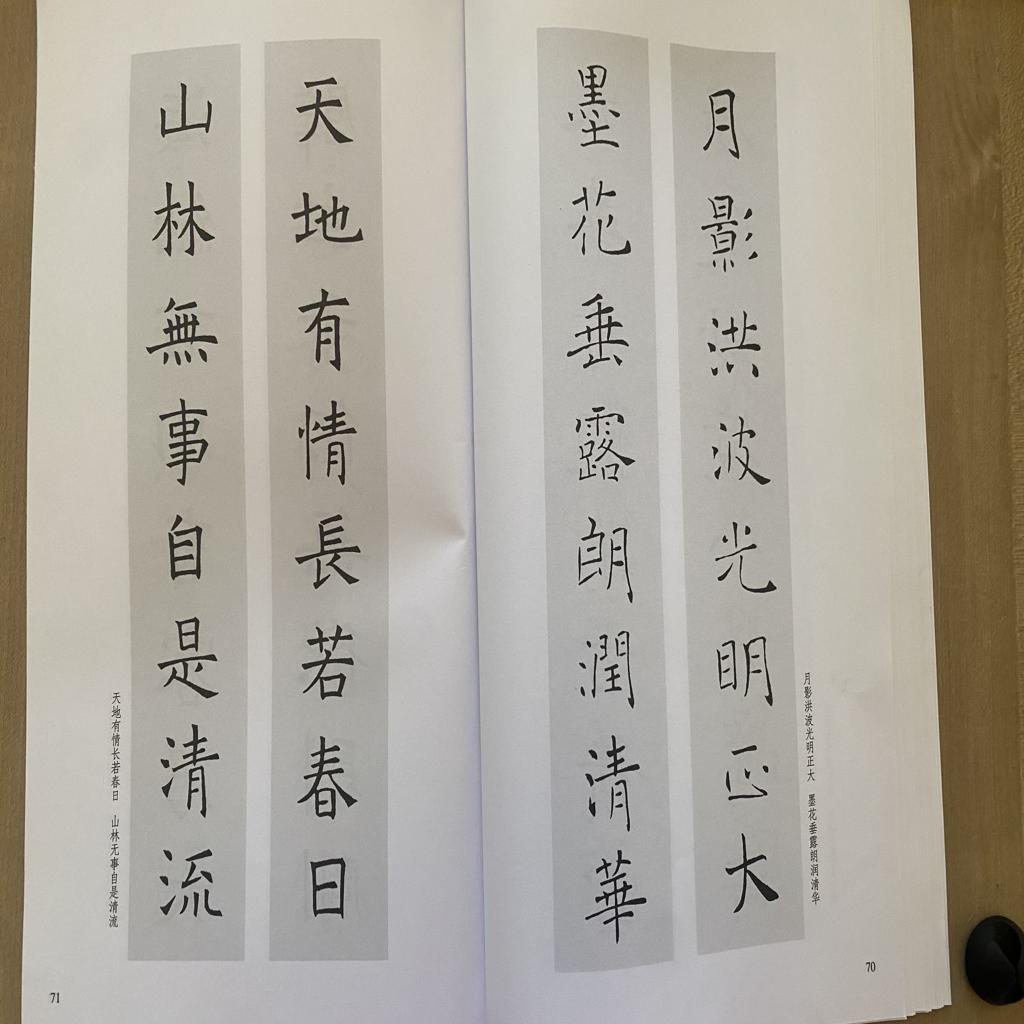 月影洪波光明正大
墨花垂露朗潤清華
月影洪波光明正大 墨花垂露朗润清华
70
天地有情長若春日
山林無事自是清流
天地有情长若春日 山林无事自是清流
71